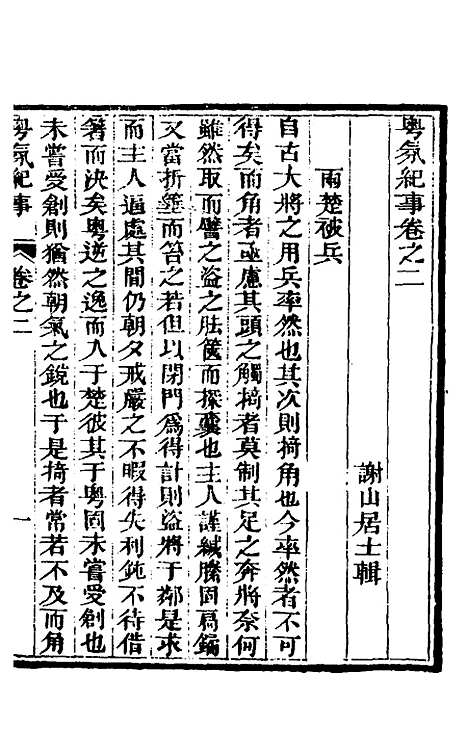 粵氛紀事卷之二
謝山居士輯
兩楚破兵
自古大將之用兵率然也其次則掎角也今率然者不可
得矣而角者亟慮其頭之觸掎者莫制其足之奔將奈何
雖然取而譬之盜之胠篋而探囊也主人謹緘縢固扃鐍
又當折箠而笞之若但以閉門爲得計則盜將于鄰是求
而主人逼處其間仍朝夕戒嚴之不暇得失利鈍不待借
箸而決矣粵逆之逸而入于楚彼其于粵固未嘗受創也
未嘗受創則猶然朝氣之銳也于是掎者常若不及而角
粵氛紀事
卷之二
一